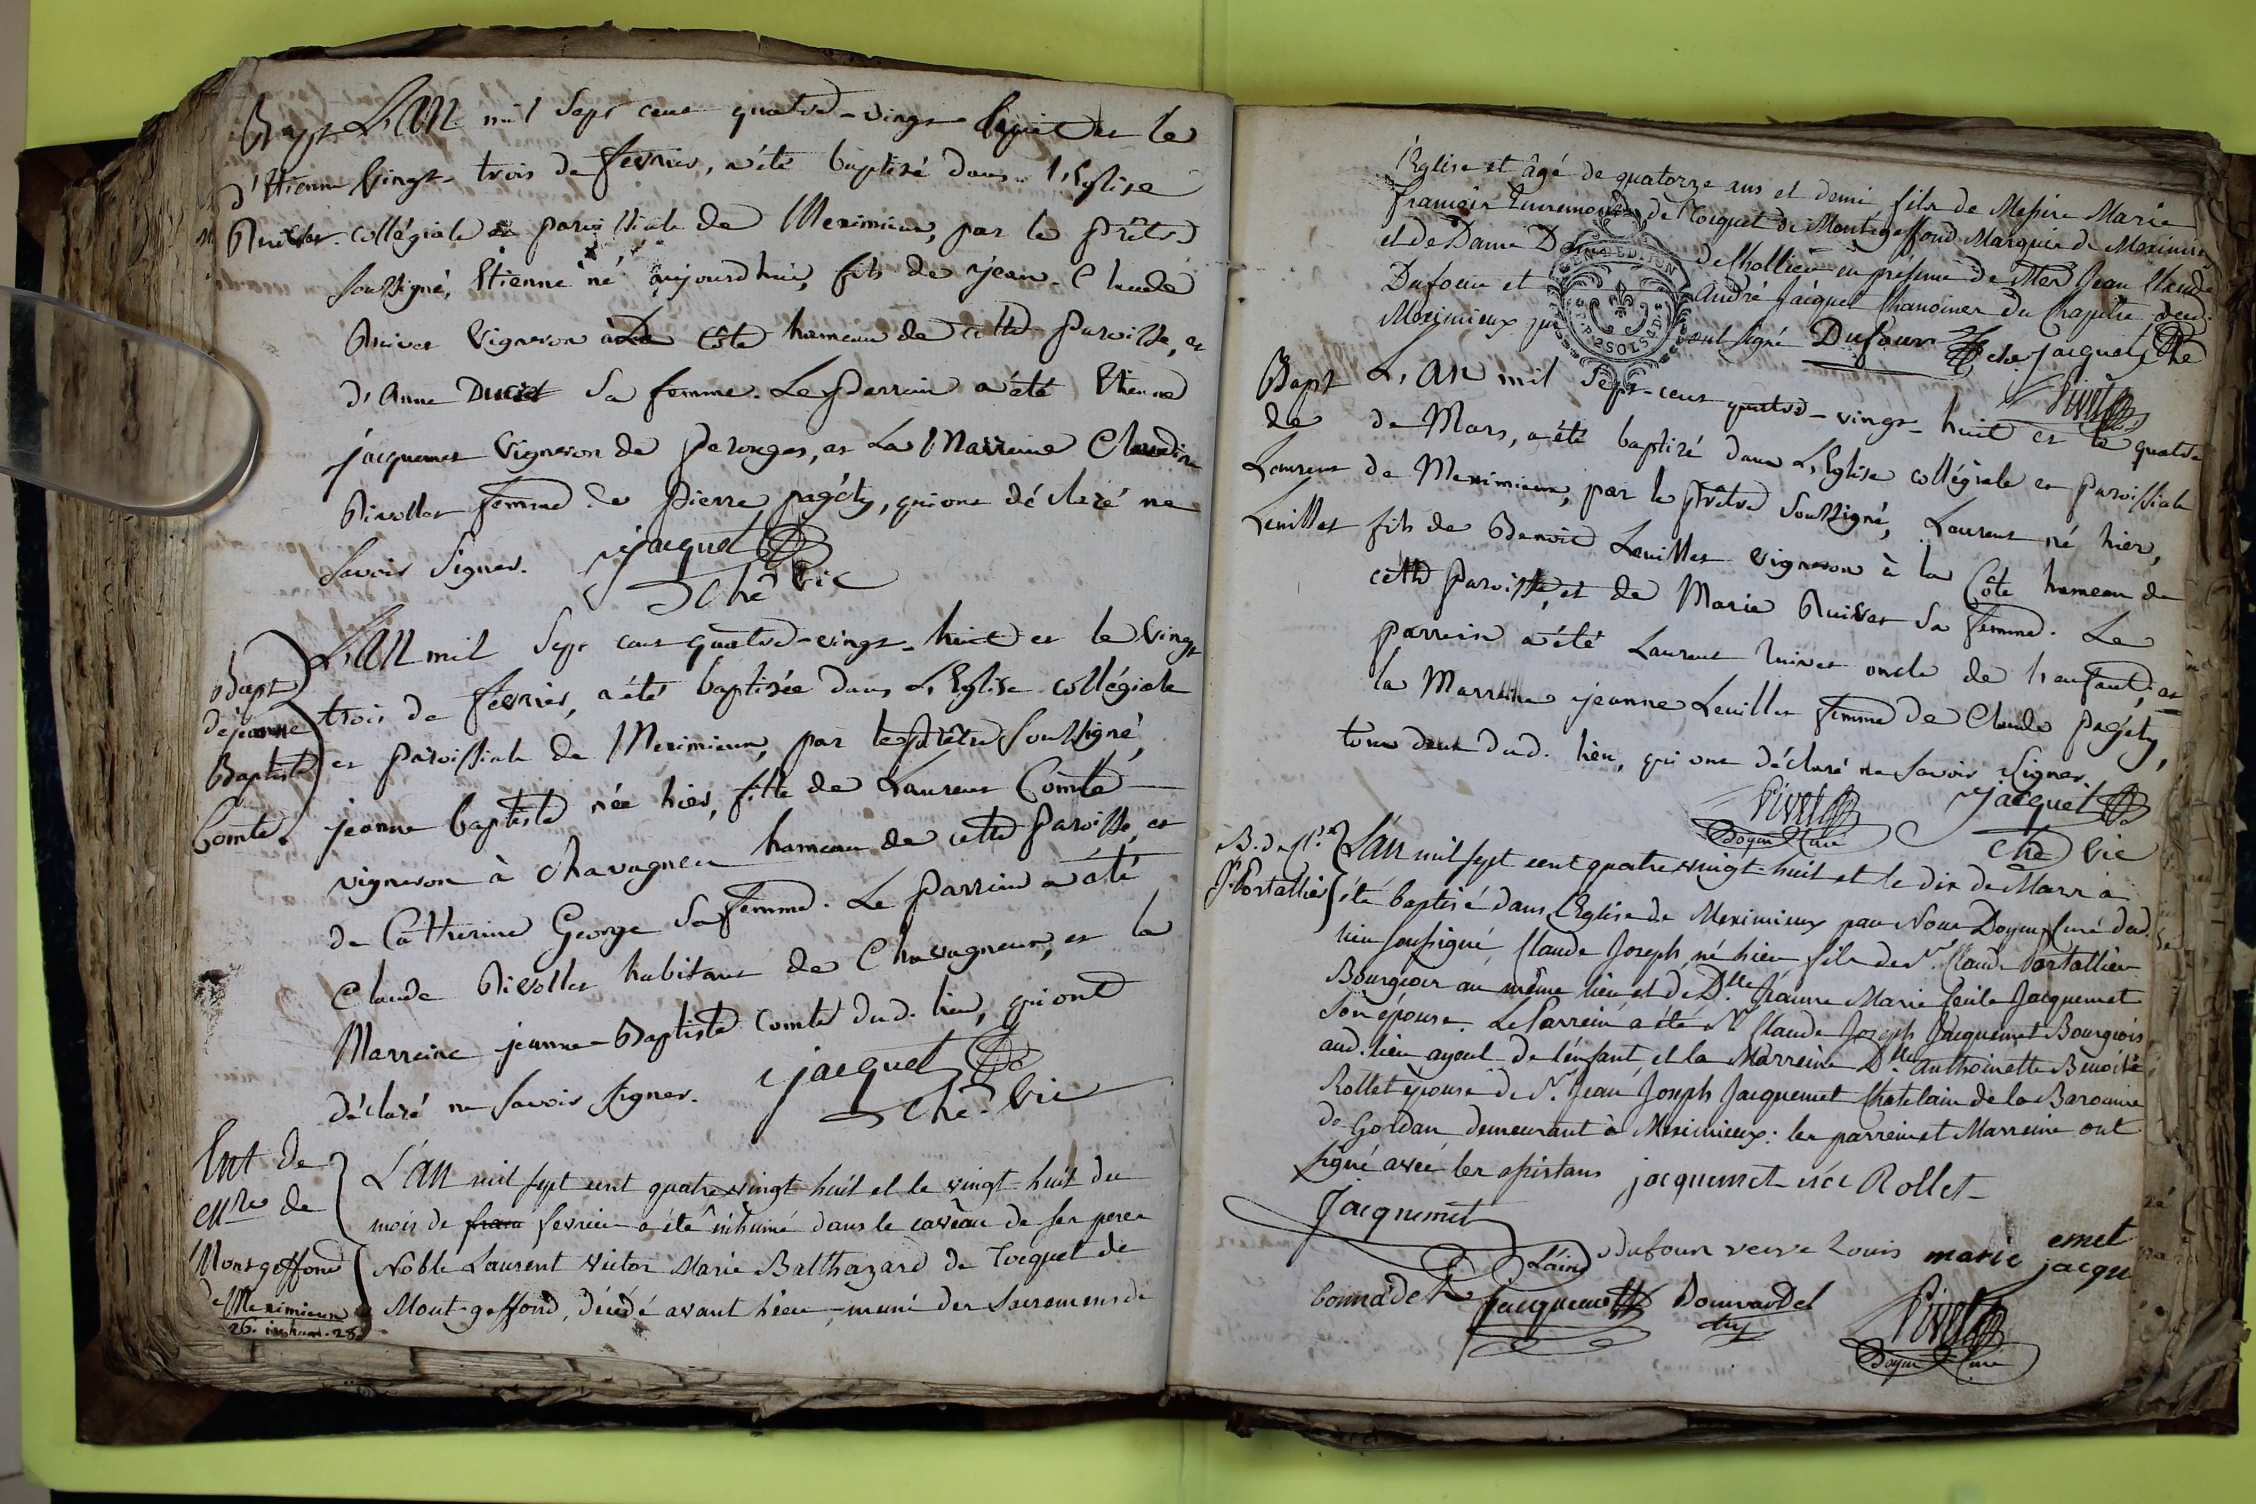 Bapt L'an mil sept cent quatre-vingt huit et le
d'Etienne vingt-trois de fevrier, a été baptisé dans l'Eglise
Ruivet collégiale et paroissiale de Meximieux, par le prêtre
soussigné, Etienne né aujourdhui, fils de jean-Claude
Ruivet vigneron à la Côte hameau de cette paroisse, et
d'Anne Ducret sa femme. Le parrain a été Etienne
jacquemet vigneron de Perouges, et La Marraine Claudine
Rivollet femme de pierre pagéty, qui ont déclaré ne
savoir signer. jacquet
che vic
Bapt
de jeanne
Baptiste
Comte.
L'an mil sept cent quatre-vingt-huit et le vingt
trois de fevrier, a été baptisée dans L'Eglise collégiale
et paroissiale de Meximieux, par le prêtre soussigné,
jeanne baptiste née hier, fille de Laurent Comte
vigneron à Chavagneu hameau de cette paroisse, et
de Catherine George sa femme. Le parrain a été
Claude Rivollet habitant de Chavagneux, et la
Marraine jeanne-Baptiste Comte dud. lieu, qui ont
déclaré ne savoir signer. jacquet
che. vic
Ent de
de
Montgeffond
de Meximieux
26. inhum. 28.
L'an mil sept cent quatre vingt huit et le vingt-huit du
mois de fevrier a été inhumé dans le caveau de ses peres
Noble Laurent Victor Marie Balthazard de Tocquet de
Mont-geffond, décédé avant hier, muni des Sacremens de
l'Eglise et âgé de quatorze ans et demi fils de Messire Marie
françois de Tocquet de Montgeffond Marquis de Meximieux
et de Dame de Chollier en présence de Mes Jean Claude
Dufour et André Jacquet Chanoines du Chapitre dud.
Meximieux qui ont signé Dufour che jacquet che
Rivet
GEN EXPEDITION
Bapt
de
Laurent
Leuillet
L'an mil sept-cent quatre-vingt-huit et le quatre
de Mars, a été baptisé dans L'Eglise collégiale et paroissiale
de Meximieux, par le prêtre soussigné, Laurent né hier,
fils de Benoit Leuillet vigneron à la Côte hameau de
cette paroisse, et de Marie Ruivet sa femme. Le
parrein a été Laurent Ruivet oncle de l'enfant, et
la Marraine jeanne Leuillet femme de Claude pagéty,
tous deux dud. lieu, qui ont déclaré ne savoir signer.
Rivet jacquet
Doyen Curé che vic
B. de Cl.
J. Portallier
L'an mil sept cent quatre vingt-huit et le dix de Mars a
été baptisé dans l'Eglise de Meximieux par Nous Doyen Curé dud.
lieu soussigné, Claude Joseph, né hier fils de Sr. Claude Portallier
Bourgeois au même lieu et de Dlle Jeanne Marie Cecile Jacquemet
son épouse. Le Parrein a été Sr Claude Joseph Jacquemet Bourgeois
aud. lieu, ayeul de l'enfant, et la Marreine Dlle Anthoinette Benoite
Rollet epouse de Sr. Jean Joseph Jacquemet Chatelain de la Baronnie
de Gordan demeurant à Meximieux: les parrein et Marreine ont
signé avec les assistans jacquemet née Rollet
Jacquemet
L'ainé Dufour veuve Louis marie jacquemet
bonnadet Jacquemet Bouvardet
Rivet
Doyen Curé